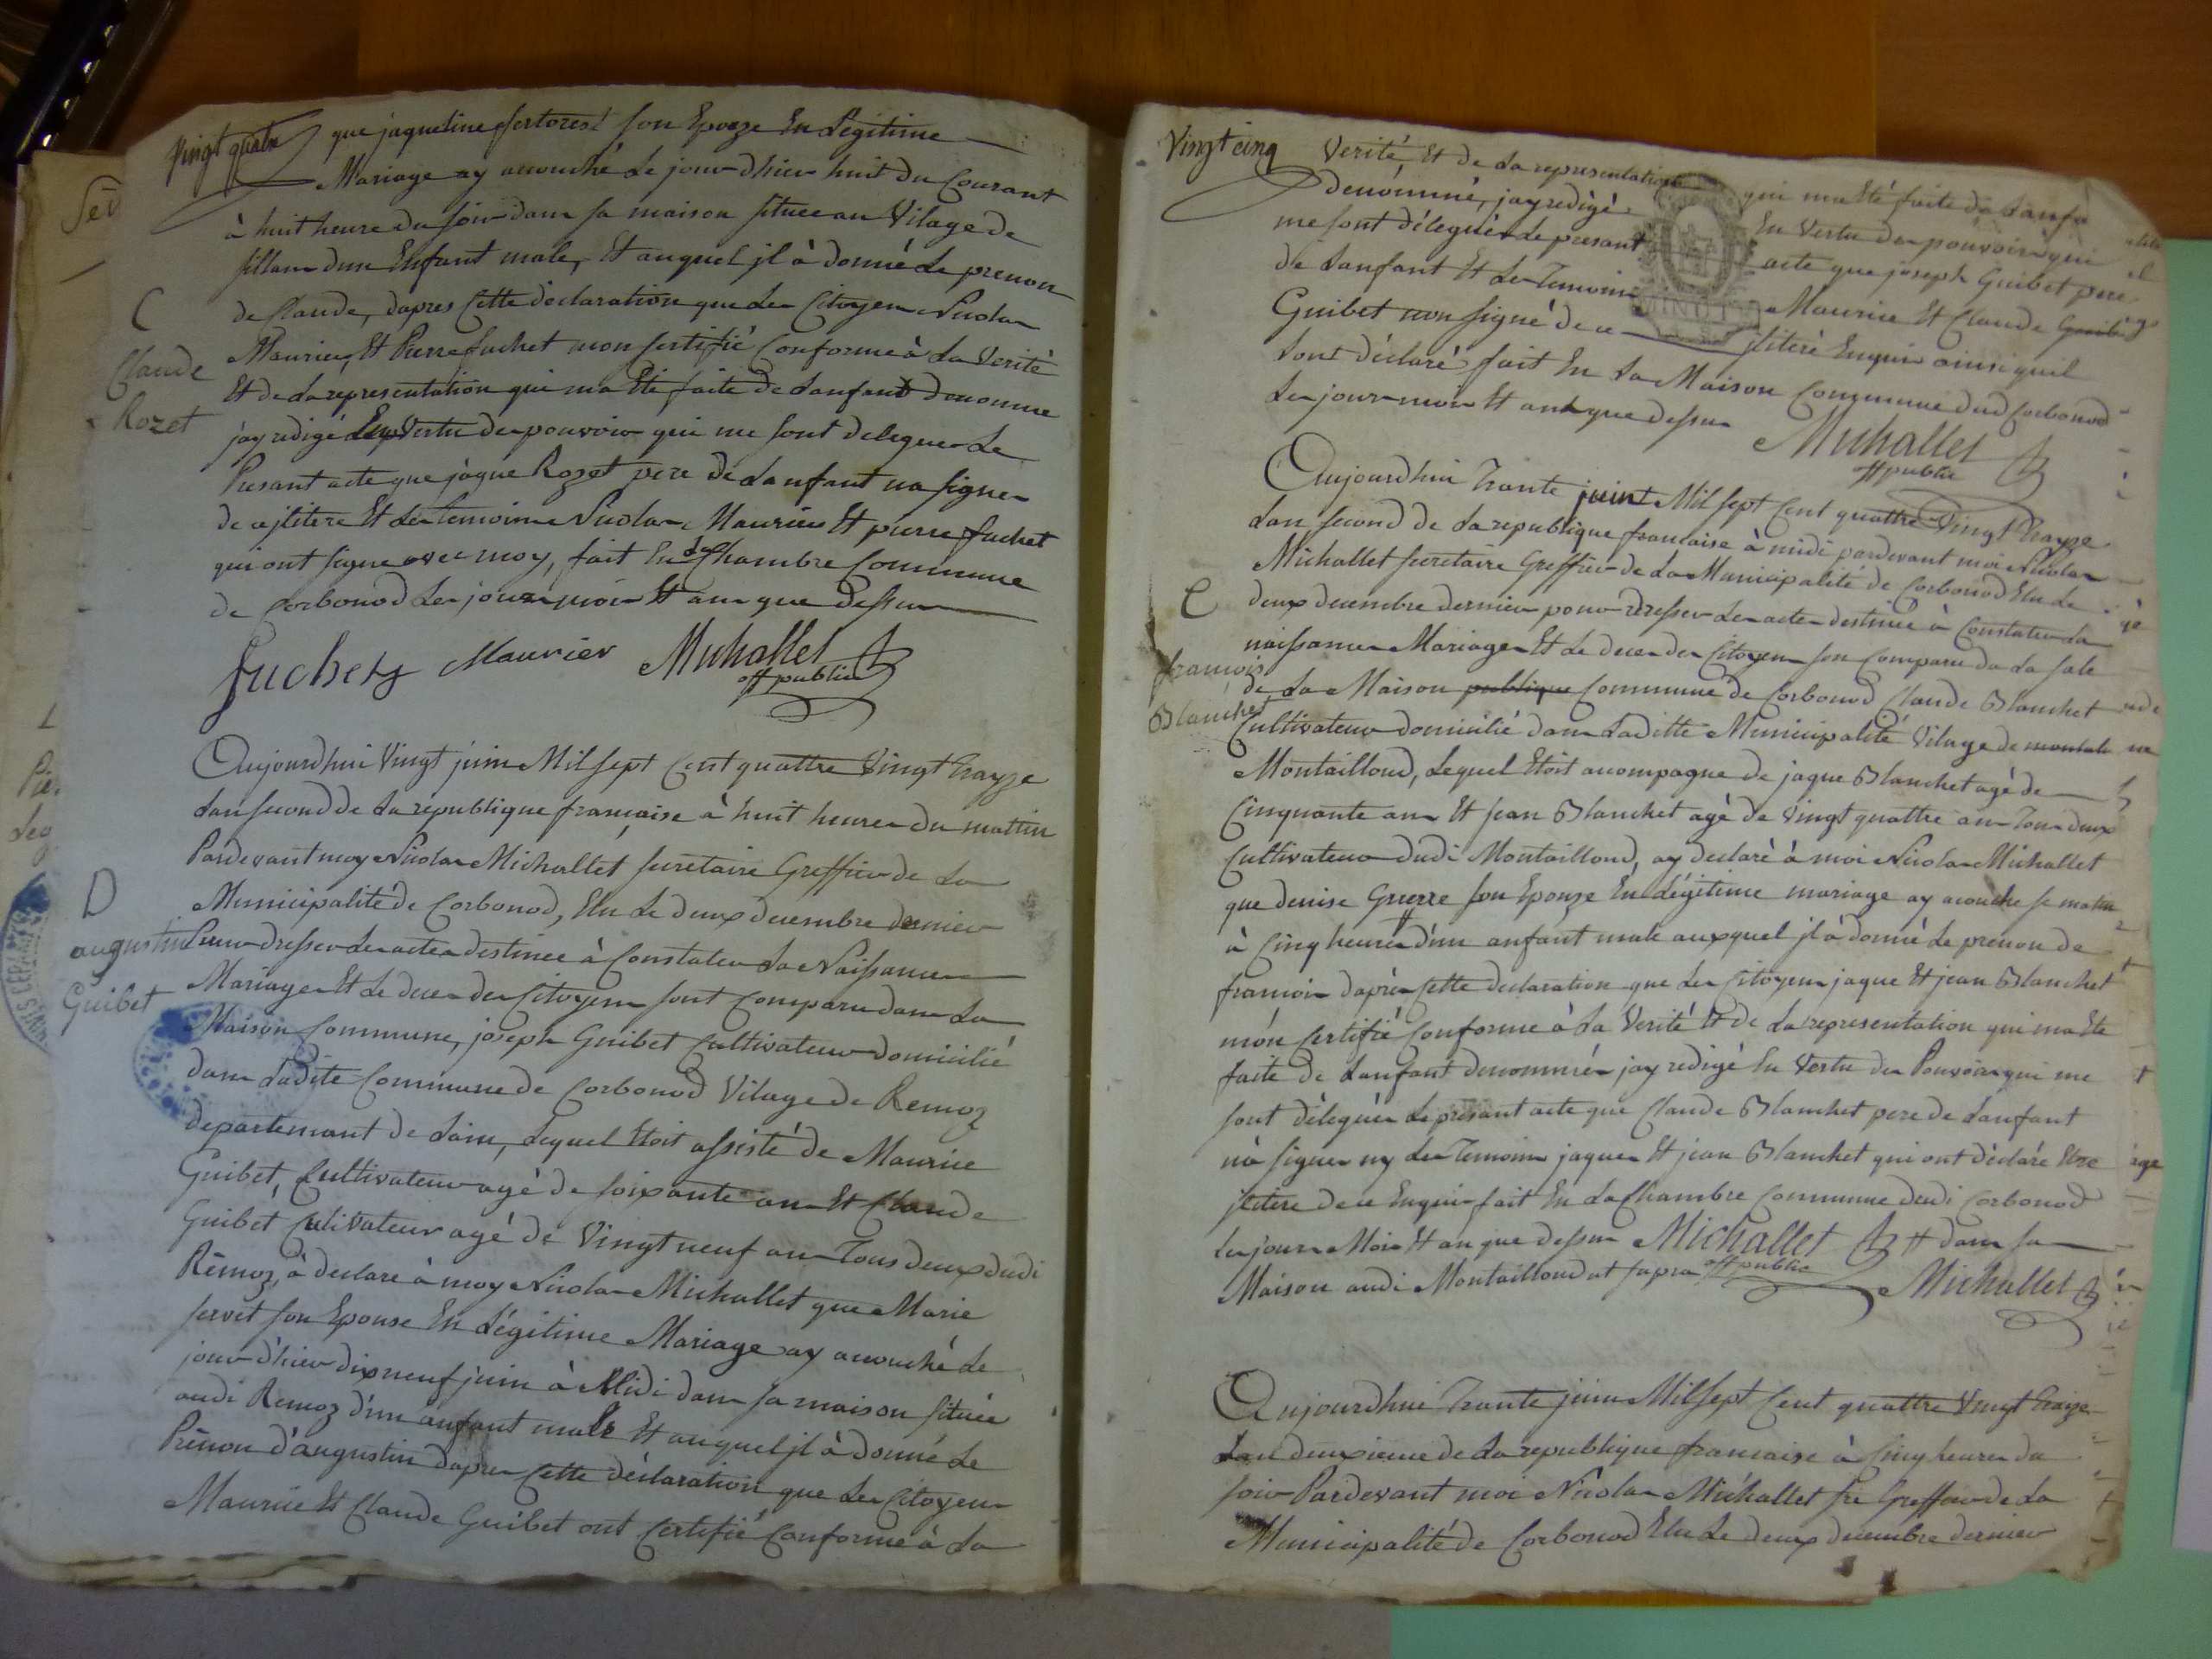 Vingt quatre
que jaqueline fertoret son Epouze En Légitime
Mariage ay acouché Le jour dhier huit du Courant
à huit heure du soir dans sa maison située au Vilage de
sillan dun Enfant male, Et auquel jl à donné Le prenon
de Claude, dapres Cette déclaration que Les Citoyens Nicolas
Maurier, Et Pierre fuchet mon sertifié Conforme à La Verité
Et de La representation qui ma Eté faite de Lanfant denomme
jay redigé En Vertu des pouvoir qui me sont deleguer Le
Presant acte que jàque Rozet pere de Lanfant na signer
de ce jlitere Et Les Temoins Nicolas Maurier Et pierre fuchet
qui ont signe avec moy, fait En la Chambre Commune
de Corbonod Les jour mois Et an que dessus
C
Claude
Rozet
fuchet Maurier Michallet
off public
Aujourdhui Vingt juin Mil sept Cent quattre Vingt Trayze
Lan second de La republique française à huit heures du mattin
Pardevant moy Nicolas Michallet secretaire Greffier de La
Municipalité de Corbonod, Elu Le deux decembre dernier
Pour dresser Les actes destinee à Constater La Naissance
Mariages Et Le deces des Citoyens sont Comparu dans La
Maison Commune, joseph Guibet Cultivateur domicilié
dans Ladite Commune de Corbonod Vilage de Remoz
departemant de Lain, Lequel Etoit assisté de Maurice
Guibet, Cultivateur agé de soixante ans Et Claude
Guibet Cultivateur agé de Vingt neuf ans Tous deux dudi
Rémoz, à declare à moy Nicolas Michallet que Marie
servet son Epouse En Légitime Mariage ay acouché Le
jour d'hier dix neuf juin à Midi dans sa maison située
audi Remoz d'un anfant male Et auquel jl à donné Le
Prénon d'augustin dapres Cette déclaration que Les Citoyens
Maurice Et Claude Guibet ont Certifié Conforme à La
D
augustin
Guibet
Vingt cinq
Verité, Et de La representation qui ma Eté faite de Lanfa
denómmé, jay redigé En Vertu des pouvoirs qui
me sont délegués Le presant acte que joseph Guibet pere
de Lanfant Et Les Temoins Maurice Et Claude Guibet
Guibet non signé de ce jlitere Enquis ainsi quil
Lont déclaré fait En La Maison Commune dud Corbonod
Les jour mois Et ans que dessus
MINUTE
Michallet
off public
Aujourdhui Trante juint Mil sept Cent quattre Vingt Trayze
Lan second de La republique francaise à midi pardevant moi Nicolas
Michallet secretaire Greffier de La Municipalité de Corbonod Elu Le
deux decembre dernier pour dresser Les actes destinée à Constater La
naissance Mariages Et Le deces des Citoyens son Comparu da La sale
de La Maison publique Commune de Corbonod Claude Blanchet
Cultivateur domicilié dans Laditte Municipalité Vilage de
Montailloud, Lequel Etoit acompagne de jaque Blanchet agé de
Cinquante ans Et jean Blanchet agé de Vingt quattre ans Tous deux
Cultivateur dudi Montailloud, ay declaré à moi Nicolas Michallet
que denise Guerre son Epouze En Légitime mariage ay acouche se matin
à Cinq heures d'un anfant male auxquel jl à donné Le prenon de
francois daprès Cette declaration que Les Citoyens jaque Et jean Blanchet
món Certifié Conforme à La Verité Et de La representation qui ma Ete
faite de Lanfant denommés jay redigé En Vertu des Pouvoirs qui me
sont délegués Le presant acte que Claude Blanchet pere de Lanfant
nà signer ny Les Temoins jaques Et jean Blanchet qui ont déclaré Etre
jlitere de ce Enquis fait En La Chambre Commune dudi Corbonod
Les jours Mois Et an que dessus Michallet # dans sa
off public
Maison audi Montailloud ut supra Michallet
C
francois
Blanchet
Aujourdhui Trante juin Mil sept Cent quattre Vingt Traize
Lan deuxieme de La republique francaise à Cinq heures du
soir Pardevant moi Nicolas Michallet sre Greffier de La
Municipalité de Corbonod Elu Le deux decembre dernier